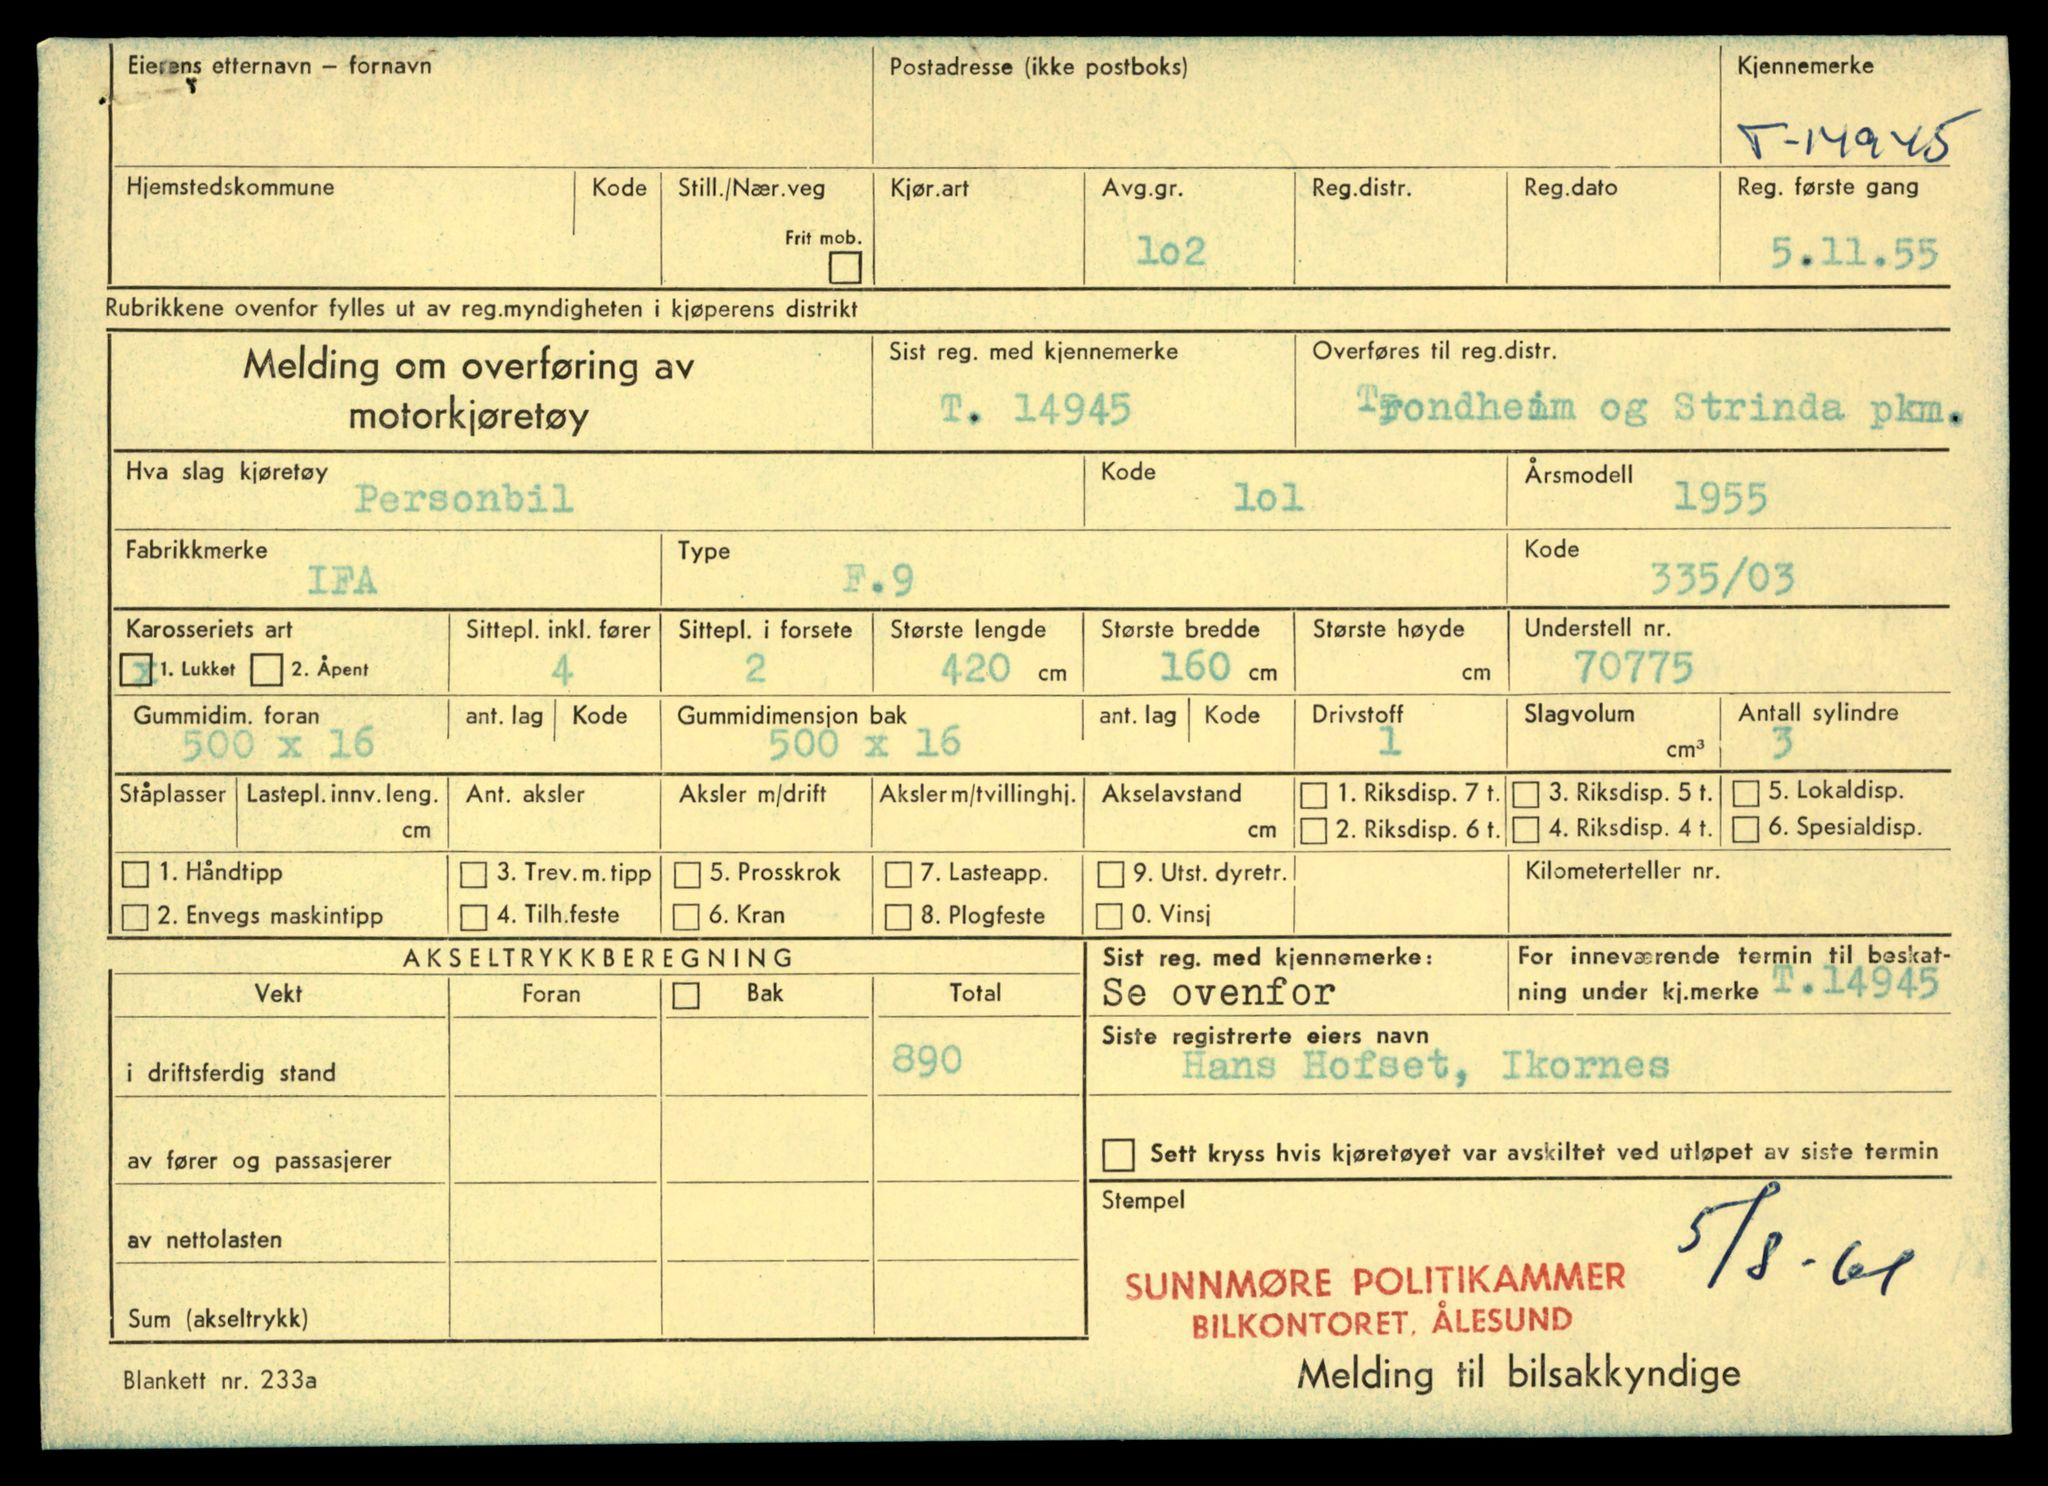 Eierens etternavn – fornavn
Postadresse (ikke postboks)
Kjennemerke
T-14945
Hjemstedskommune
Kode
Still./Nær.veg
Frit mob.
Kjør.art
Avg.gr.
lo2
Reg.distr.
Reg.dato
Reg. første gang
5.11.55
Rubrikkene ovenfor fylles ut av reg.myndigheten i kjøperens distrikt
Melding om overføring av
motorkjøretøy
Sist reg. med kjennemerke
T. 14945
Overføres til reg.distr.
Trondheim og Strinda pkm.
Hva slag kjøretøy
Personbil
Kode
lol
Årsmodell
1955
Fabrikkmerke
IFA
Type
F.9
Kode
335/03
Karosseriets art
x 1. Lukket 2. Åpent
Sittepl. inkl. fører
4
Sittepl. i forsete
2
Største lengde
420 cm
Største bredde
160 cm
Største høyde
cm
Understell nr.
70775
Gummidim. foran
500 x 16
ant. lag
Kode
Gummidimensjon bak
500 x 16
ant. lag
Kode
Drivstoff
1
Slagvolum
cm³
Antall sylindre
3
Ståplasser
Lastepl. innv. leng.
cm
Ant. aksler
Aksler m/drift
Aksler m/tvillinghj.
Akselavstand
cm
1. Riksdisp. 7 t.
3. Riksdisp. 5 t.
5. Lokaldisp.
2. Riksdisp. 6 t.
4. Riksdisp. 4 t.
6. Spesialdisp.
1. Håndtipp
3. Trev. m. tipp
5. Prosskrok
7. Lasteapp.
9. Utst. dyretr.
Kilometerteller nr.
2. Envegs maskintipp
4. Tilh.feste
6. Kran
8. Plogfeste
0. Vinsj
AKSELTRYKKBEREGNING
Vekt
Foran
Bak
Total
i driftsferdig stand
890
av fører og passasjerer
av nettolasten
Sum (akseltrykk)
Sist reg. med kjennemerke:
Se ovenfor
For inneværende termin til beskat-
ning under kj.merke T.14945
Siste registrerte eiers navn
Hans Hofset, Ikornes
Sett kryss hvis kjøretøyet var avskiltet ved utløpet av siste termin
Stempel
5/8-61
SUNNMØRE POLITIKAMMER
BILKONTORET, ÅLESUND
Blankett nr. 233a
Melding til bilsakkyndige